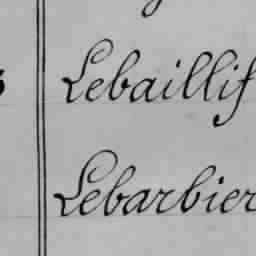 Lebaillif
Lebarbier